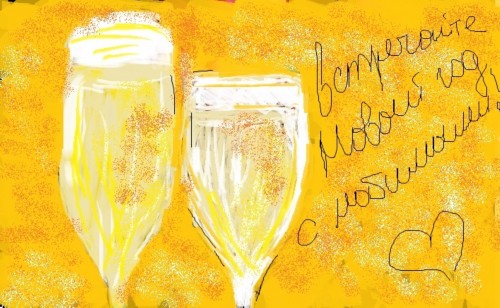 встречайте
Новый год,
с любимыми